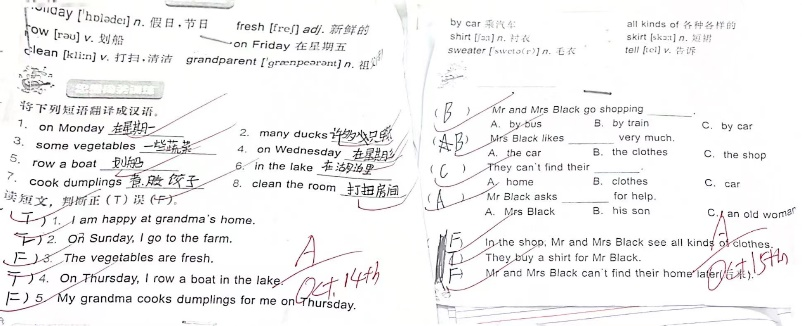 holiday ['hɒlədeɪ] n. 假日,节日
fresh [freʃ] adj. 新鲜的
row [rəʊ] v. 划船
on Friday 在星期五
clean [kliːn] v. 打扫,清洁
grandparent ['grænpeərənt] n.
将下列短语翻译成汉语。
1. on Monday 在星期一
2. many ducks 许多小只鸭
3. some vegetables 一些蔬菜
4. on Wednesday 在星期三
5. row a boat 划船
6. in the lake 在湖里
7. cook dumplings 煮 饺子
8. clean the room 打扫房间
读短文,判断正(T)误(F)。
(T) 1. I am happy at grandma's home.
(T) 2. On Sunday, I go to the farm.
(F) 3. The vegetables are fresh.
(T) 4. On Thursday, I row a boat in the lake.
(F) 5. My grandma cooks dumplings for me on Thursday.
A
Oct. 14th
by car 乘汽车
all kinds of 各种各样的
shirt [ʃɜːt] n. 衬衣
skirt [skɜːt] n. 短裙
sweater ['swetə(r)] n. 毛衣
tell [tel] v. 告诉
(B) Mr and Mrs Black go shopping ______.
A. by bus B. by train C. by car
(AB) Mrs Black likes ______ very much.
A. the car B. the clothes C. the shop
(C) They can't find their ______.
A. home B. clothes C. car
(A) Mr Black asks ______ for help.
A. Mrs Black B. his son C. an old woman
F In the shop, Mr and Mrs Black see all kinds of clothes.
T They buy a shirt for Mr Black.
F Mr and Mrs Black can't find their home later
A
Oct. 15th